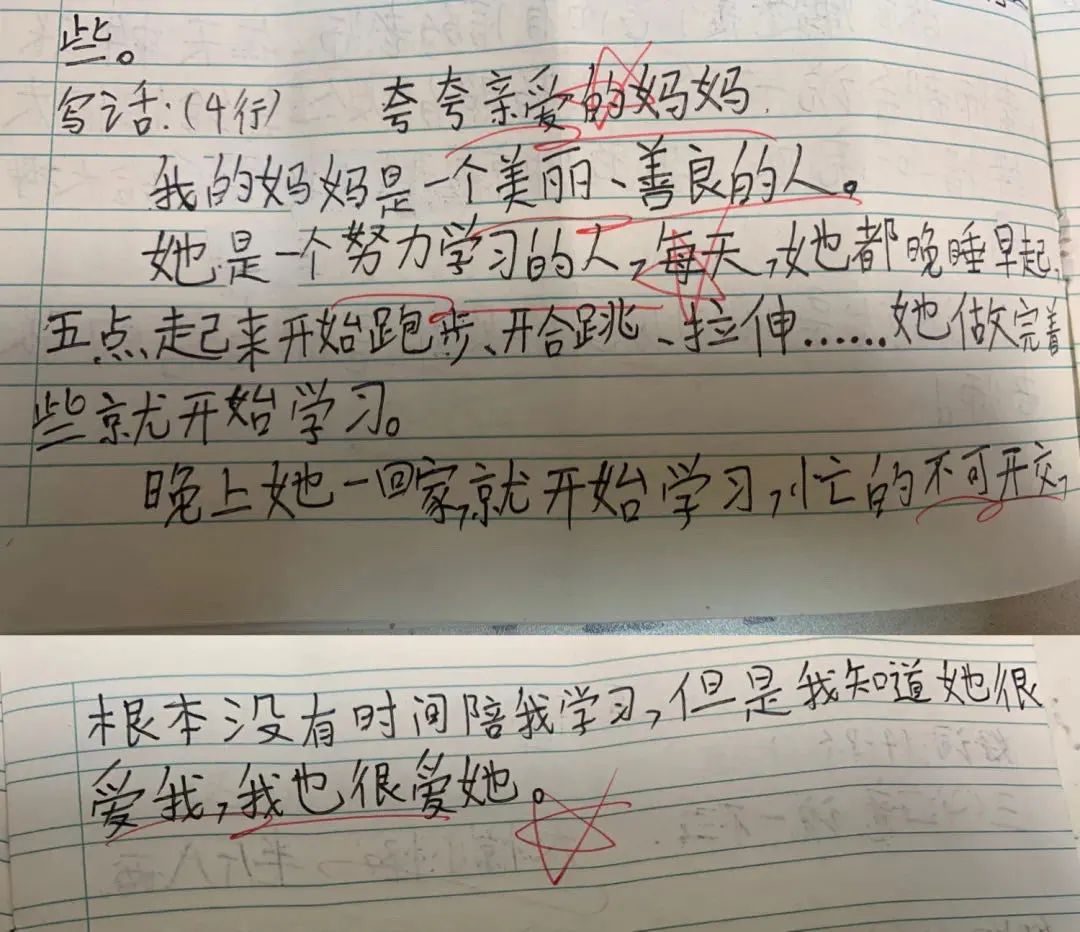 些。
写话:(4行) 夸夸亲爱的妈妈
我的妈妈是一个美丽、善良的人。
她是一个努力学习的人,每天,她都晚睡早起,
五点起来开始跑步、开合跳、拉伸……她做完这
些就开始学习。
晚上她一回家,就开始学习,忙的不可开交,
根本没有时间陪我学习,但是我知道她很
爱我,我也很爱她。